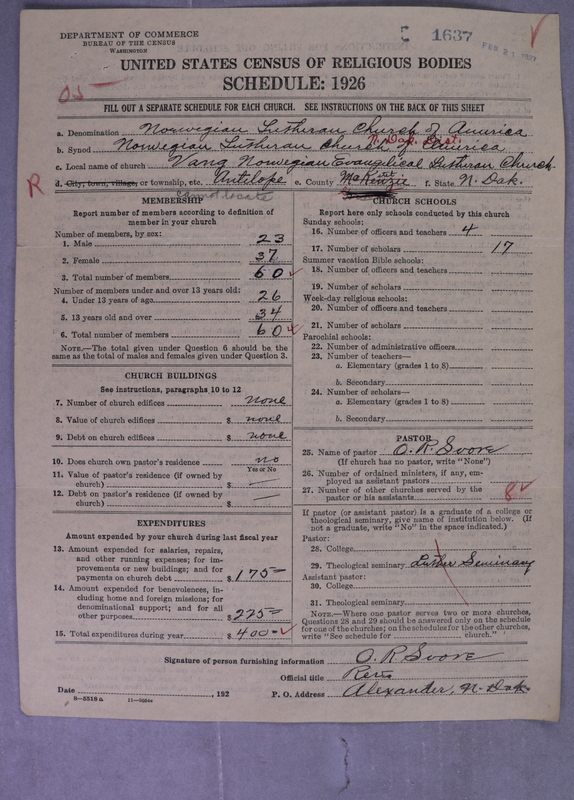 DEPARTMENT OF COMMERCE
BUREAU OF THE CENSUS
WASHINGTON
1637
FEB 21 1927
UNITED STATES CENSUS OF RELIGIOUS BODIES
SCHEDULE: 1926
05—
FILL OUT A SEPARATE SCHEDULE FOR EACH CHURCH. SEE INSTRUCTIONS ON THE BACK OF THIS SHEET
a. Denomination Norwegian Lutheran Church of America
N. Dak. Dist.
b. Synod Norwegian Lutheran Church of America
c. Local name of church Vang Norwegian Evangelical Lutheran Church
R d. City, town, village, or township, etc. Antelope e. County McKenzie f. State N. Dak.
cannot locate
MEMBERSHIP
Report number of members according to definition of member in your church
Number of members, by sex:
1. Male 23
2. Female 37
3. Total number of members 60
Number of members under and over 13 years old:
4. Under 13 years of age 26
5. 13 years old and over 34
6. Total number of members 60
NOTE.—The total given under Question 6 should be the same as the total of males and females given under Question 3.
CHURCH BUILDINGS
See instructions, paragraphs 10 to 12
7. Number of church edifices none
8. Value of church edifices $ none
9. Debt on church edifices $ none
10. Does church own pastor's residence no
Yes or No
11. Value of pastor's residence (if owned by church) $ —
12. Debt on pastor's residence (if owned by church) $ —
EXPENDITURES
Amount expended by your church during last fiscal year
13. Amount expended for salaries, repairs, and other running expenses; for improvements or new buildings; and for payments on church debt $ 175—
14. Amount expended for benevolences, including home and foreign missions; for denominational support; and for all other purposes $ 225—
15. Total expenditures during year $ 400—
CHURCH SCHOOLS
Report here only schools conducted by this church
Sunday schools:
16. Number of officers and teachers 4
17. Number of scholars 17
Summer vacation Bible schools:
18. Number of officers and teachers
19. Number of scholars
Week-day religious schools:
20. Number of officers and teachers
21. Number of scholars
Parochial schools:
22. Number of administrative officers
23. Number of teachers—
a. Elementary (grades 1 to 8)
b. Secondary
24. Number of scholars—
a. Elementary (grades 1 to 8)
b. Secondary
PASTOR
25. Name of pastor O. R. Svore
(If church has no pastor, write "None")
26. Number of ordained ministers, if any, employed as assistant pastors
27. Number of other churches served by the pastor or his assistants 8
If pastor (or assistant pastor) is a graduate of a college or theological seminary, give name of institution below. (If not a graduate, write "No" in the space indicated.)
Pastor:
28. College
29. Theological seminary Luther Seminary
Assistant pastor:
30. College
31. Theological seminary
NOTE.—Where one pastor serves two or more churches, Questions 28 and 29 should be answered only on the schedule for one of the churches; on the schedules for the other churches, write "See schedule for church."
Signature of person furnishing information O. R. Svore
Official title Rev.
Date , 192
P. O. Address Alexander, N. Dak.
8—5518a 11—9264